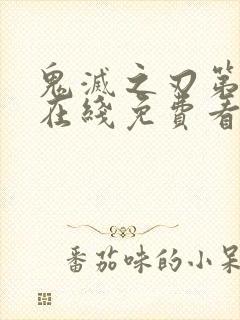 鬼滅之刃第
在綫免費看
番茄味的小呆